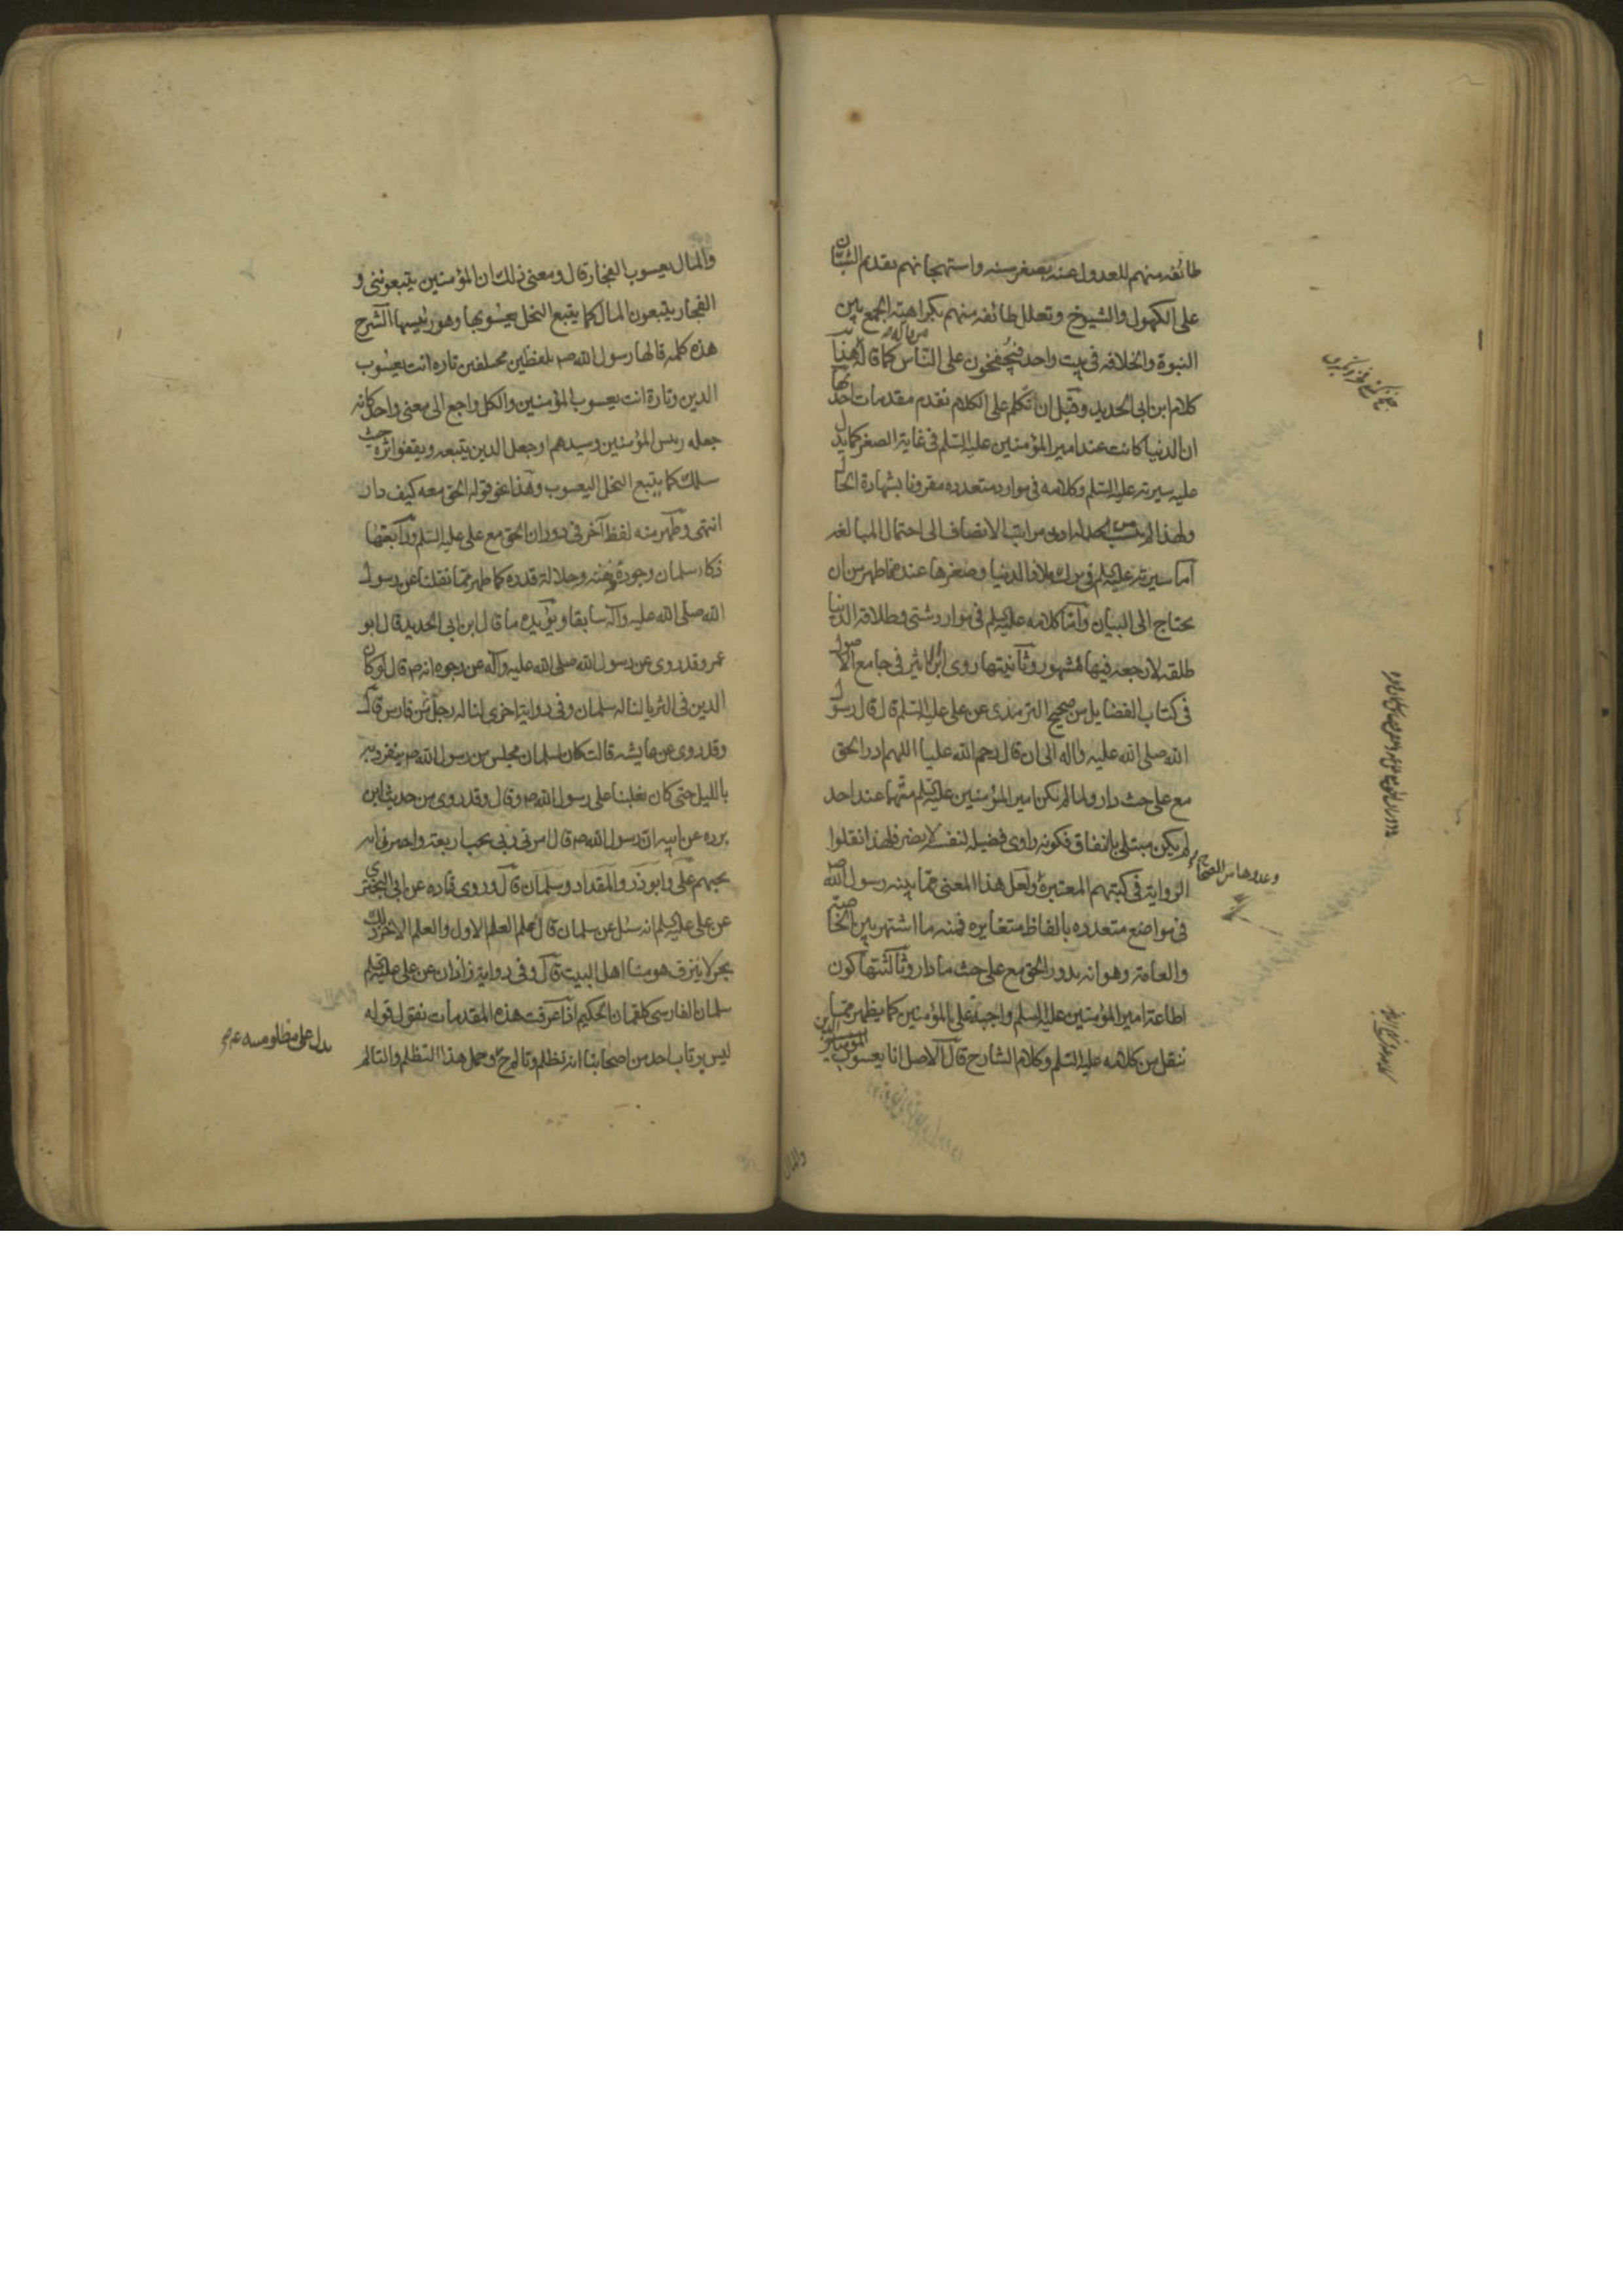 طائفه منهم للعدول عنه بصغر سنه واستهجانهم تقدم الشبان
على الكهول والشيوخ وتعلل طائفه منهم بكراهية الجمع بين
النبوة والخلافه فى بيت واحد فيجفخون على الناس كما قاله من قاله هذا
كلام ابن ابى الحديد وقبل ان نتكلم على الكلام نقدم مقدمات احدٮها
ان الدنيا كانت عند امير المؤمنين عليه السلم فى غاية الصغر كما يدل
عليه سيرته عليه السلم وكلامه فى موارد متعدده مقرونا بشهادة الحال
ولهذا لا من له ادنى مراتب الانصاف الى احتمال المبالغه
اما سيرته عليه السلم فى ترك ملاذ الدنيا وصغرها عنده فاظهر من ان
يحتاج الى البيان واما كلامه عليه السلم فى موارد شتى وطلاقه الدنيا
طلقه لا رجعه فيها فمشهور وثانيتها روى ابن الاثير فى جامع الاصول
فى كتاب الفضايل من صحيح الترمذى عن على عليه السلم قال قال رسول
الله صلى الله عليه واله الى ان قال رحم الله عليا اللهم ادر الحق
مع على حيث دار ولما لم يكن امير المؤمنين عليه السلم متهما عند احد
لم يكن مبتلى بالنفاق فكونه راوى فضيله لنفسه لا يضر فلهذا نقلوا
الرواية فى كتبهم المعتبرة وعدوها من الصحاح ولعل هذا المعنى مما بينه رسول الله ص
فى مواضع متعدده بالفاظ متغايره فمنه ما اشتهر بين الخاصة
والعامة وهو انه يدور الحق مع على حيث ما دار وثالثتها كون
اطاعة امير المؤمنين عليه السلم واجبة على المؤمنين كما يظهر مما
ننقل من كلامه عليه السلم وكلام الشارح قال الاصل انا يعسوب المؤمنين
والمال
والمال يعسوب الفجار قال ومعنى ذلك ان المؤمنين يتبعوننى و
الفجار يتبعون المال كما يتبع النحل يعسوبها وهو رئيسها الشرح
هذه كلمه قالها رسول الله ص بلفظين مختلفين تاره انت يعسوب
الدين وتارة انت يعسوب المؤمنين والكل راجع الى معنى واحد كانه
جعله رئيس المؤمنين وسيدهم او جعل الدين يتبعه ويقفو اثره حيث
سلك كما يتبع النحل اليعسوب وهذا نحو قوله الحق معه كيف دار
انتهى وظهر منه لفظ آخر فى دوران الحق مع على عليه السلم ورابعتها
ذكاء سلمان وجودة ذهنه وجلالة قدره كما ظهر مما نقلنا عن رسول
الله صلى الله عليه وآله سابقا ويؤيده ما قال ابن ابى الحديد قال ابو
عمر وقد روى عن رسول الله صلى الله عليه وآله من وجوه انه ص قال لو كان
الدين فى الثريا لناله سلمان وفى رواية اخرى لناله رجل من فارس قال
وقد روى عن عايشه قالت كان لسلمان مجلس من رسول الله ص ينفرد به
بالليل حتى كان يغلبنا على رسول الله ص وقال وقد روى من حديث ابن
برده عن ابيه ان رسول الله ص قال امرنى ربى بحب اربعة واخبرنى انه
يحبهم على وابوذر والمقداد وسلمان قال وروى قتاده عن ابى البخترى
عن على عليه السلم انه سئل عن سلمان قال علم العلم الاول والعلم الاخر ذلك
بحر لا ينزف هو منا اهل البيت قال وفى رواية زاذان عن على عليه السلم
سلمان الفارسى كلقمان الحكيم اذا عرفت هذه المقدمات نقول قوله
ليس يرتاب احد من اصحابنا انه تظلم وتالم ع وحمل هذا التظلم والتالم
يدل على مظلوميته ع م